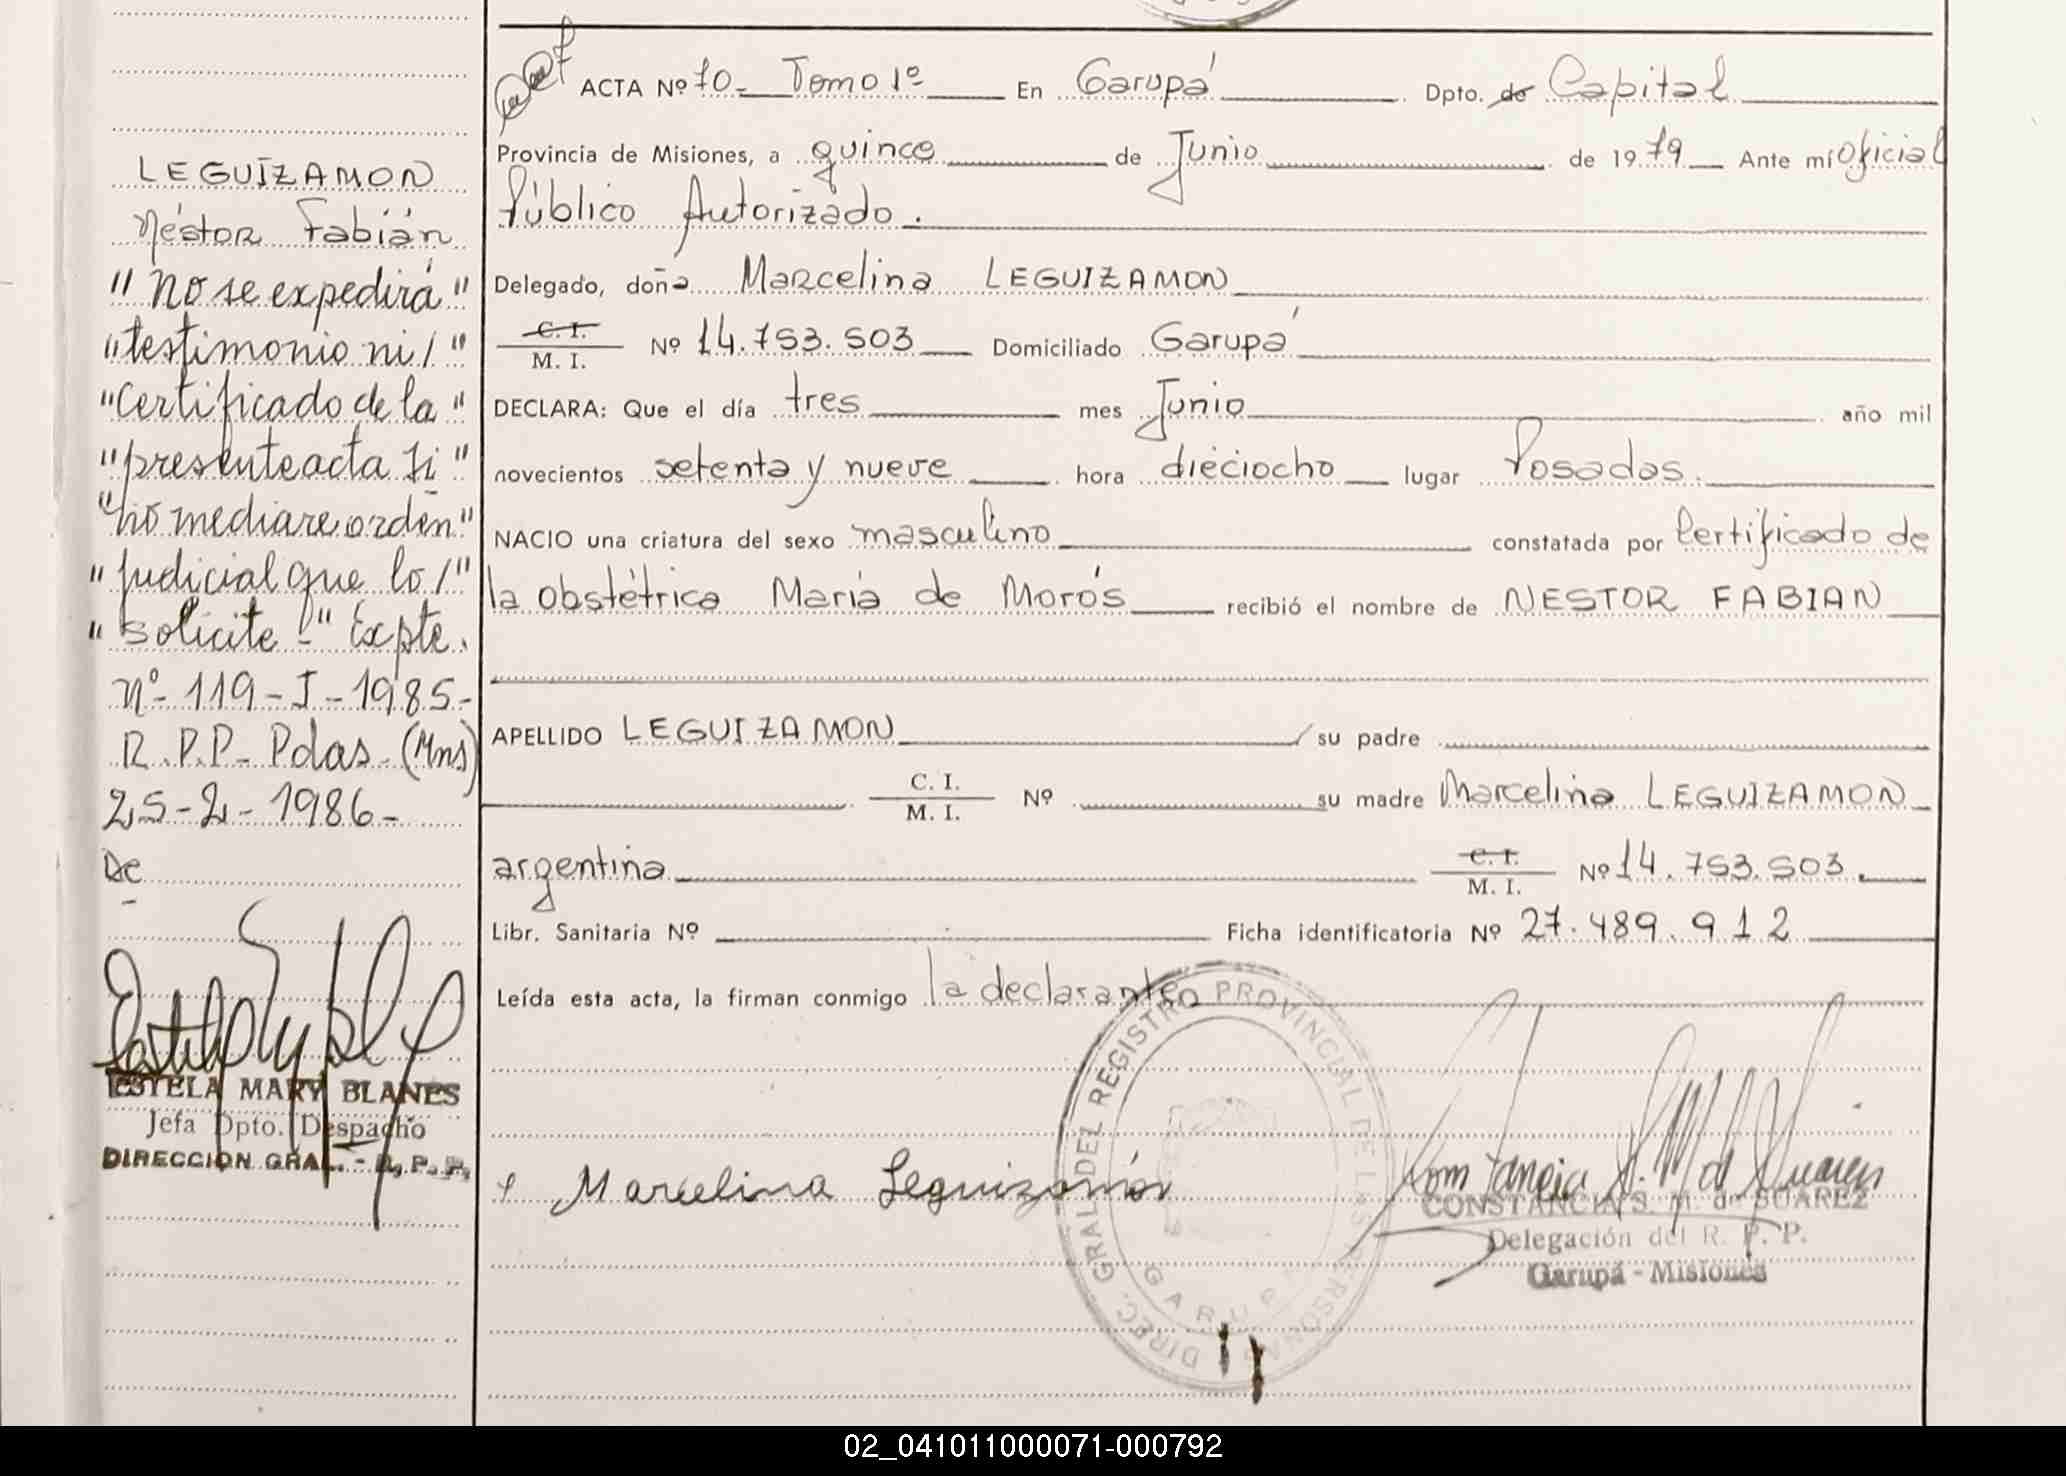 LEGUIZAMON
Néstor Fabián
"No se expedirá"
"testimonio ni/"
"Certificado de la"
"presente acta si"
"no mediare orden"
"judicial que lo/"
"solicite!" Expte.
Nº- 119-I-1985-
R.P.P- Pdas-(Mns)
25-2-1986-
De
ESTELA MARY BLANES
Jefa Dpto. Despacho
DIRECCION GRAL. - R. P. P.
ACTA Nº 70- Tomo 1º En Garupá Dpto. de Capital
Provincia de Misiones, a quince de Junio de 1979 Ante mí Oficial
Público Autorizado.
Delegado, doña Marcelina LEGUIZAMON
C. I.
M. I. Nº 14.753.503 Domiciliado Garupá
DECLARA: Que el día tres mes Junio año mil
novecientos setenta y nueve hora dieciocho lugar Posadas.
NACIO una criatura del sexo masculino constatada por Certificado de
la obstétrica María de Morós recibió el nombre de NESTOR FABIAN
APELLIDO LEGUIZAMON / su padre
C. I.
M. I. Nº su madre Marcelina LEGUIZAMON
argentina C. I.
M. I. Nº 14.753.503.
Libr. Sanitaria Nº Ficha identificatoria Nº 27.489.912
Leída esta acta, la firman conmigo la declarante
DIREC. GRAL DEL REGISTRO PROVINCIAL DE LAS PERSONAS
GARUPA
Marcelina Leguizamón
Constancia S. M. de Suarez
CONSTANCIA S. M. de SUAREZ
Delegación del R. P. P.
Garupá - Misiones
02_041011000071-000792